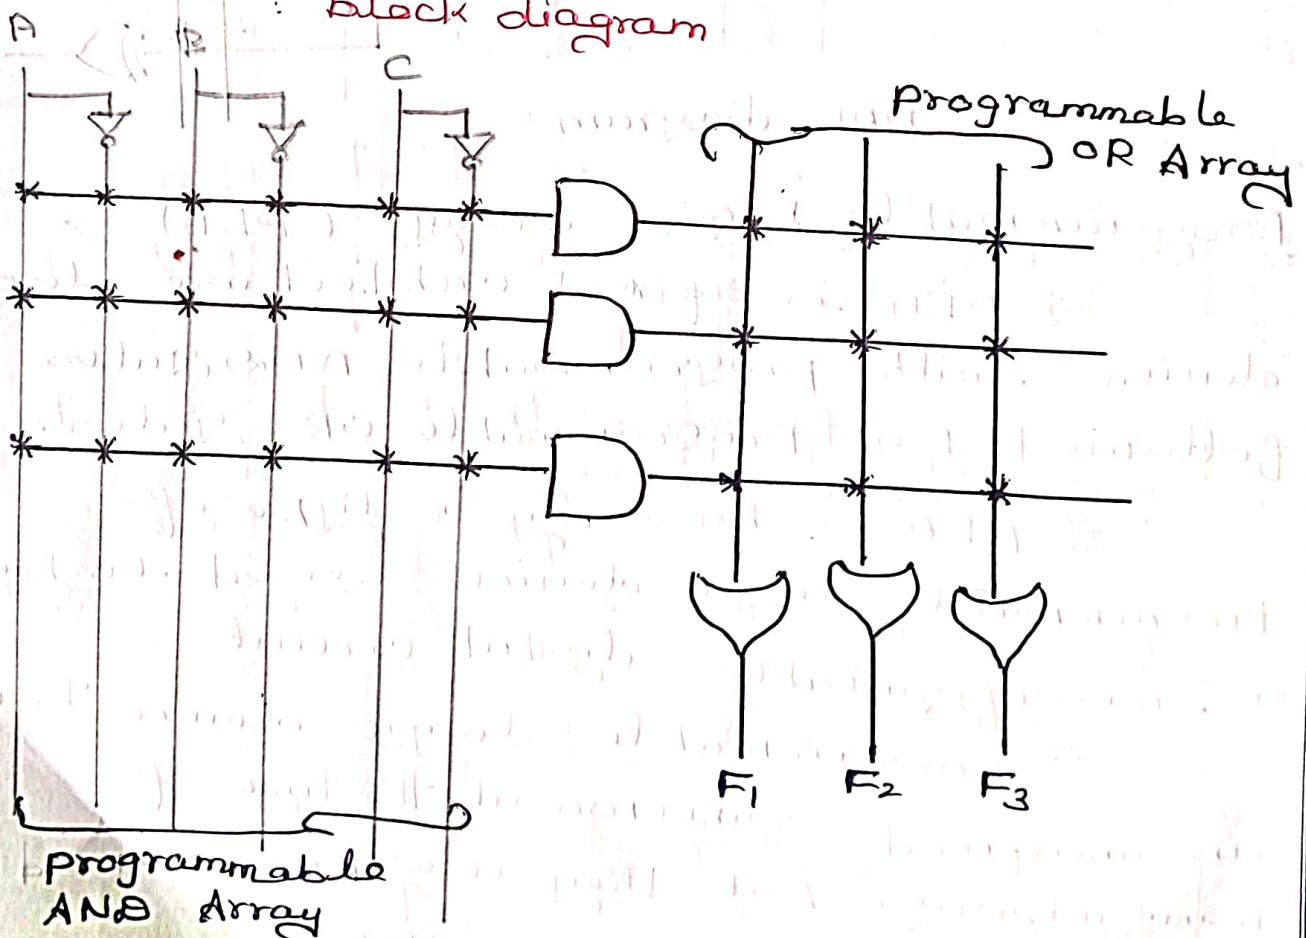 : Block diagram
A
B
C
Programmable
OR Array
F1
F2
F3
Programmable
AND Array